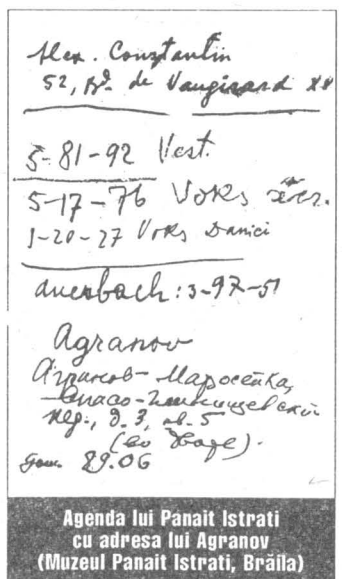 Alex. Constantin
52, Bd. de Vaugirard XV
5-81-92 Vest.
5-17-76 Voks
1-20-27 Voks Danici
auerbach: 3-97-51
Agranov
Агранов - Маросейка,
Спасо-Глинищевский
пер., д. 3, кв. 5
(во дворе).
дом. 89.06
Agenda lui Panait Istrati
cu adresa lui Agranov
(Muzeul Panait Istrati, Brăila)